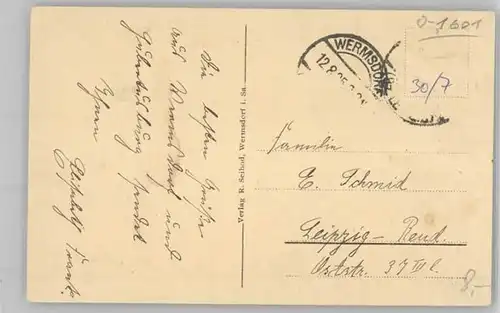 Die besten Grüße
aus Wermsdorf und
Hubertusburg sendet
Ihnen
Elisabeth
Verlag R. Seibod, Wermsdorf i. Sa.
WERMSDORF
12.8.25
O-1601
30/7
Familie
E. Schmid
Leipzig - Reud.
Oststr. 37 III l.
8,-